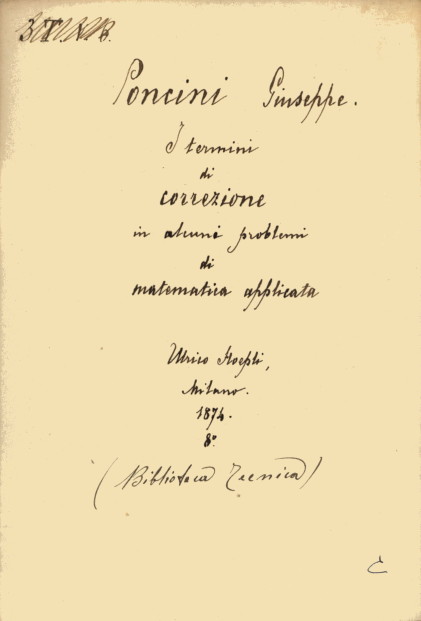 Poncini Giuseppe.
I termini
di
correzione
in alcuni problemi
di
matematica applicata
Ulrico Hoepli,
Milano.
1874.
8°
(Biblioteca Tecnica)